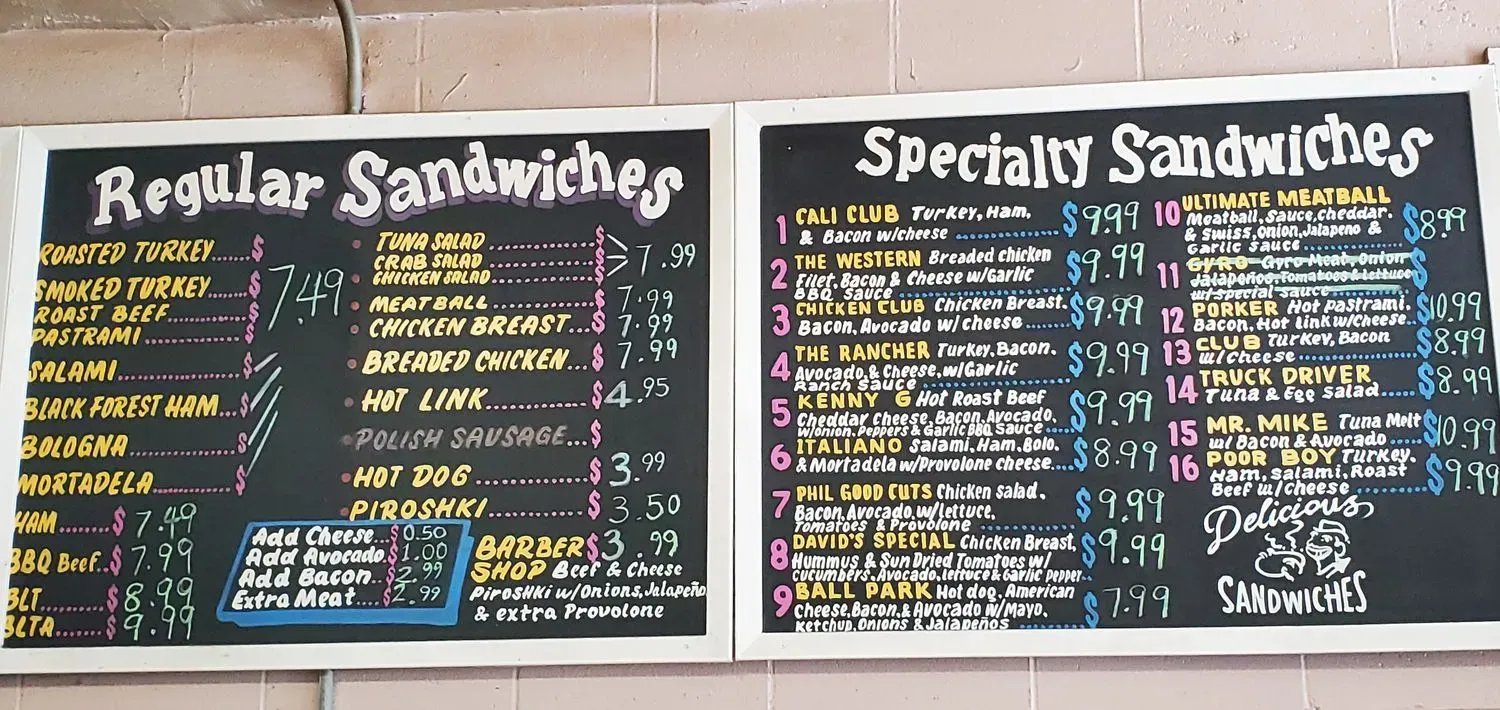 Regular Sandwiches
ROASTED TURKEY......$
SMOKED TURKEY........$ 7.49
ROAST BEEF..........$
PASTRAMI............$
SALAMI..............$
BLACK FOREST HAM...$
BOLOGNA.............$
MORTADELA...........$
HAM.......$ 7.49
BBQ Beef..$ 7.99
BLT.......$ 8.99
BLTA......$ 9.99
TUNA SALAD..........$
CRAB SALAD..........$ 7.99
CHICKEN SALAD.......$
MEATBALL............$ 7.99
CHICKEN BREAST...$ 7.99
BREADED CHICKEN...$ 7.99
HOT LINK............$ 4.95
POLISH SAUSAGE...$
HOT DOG.............$ 3.99
PIROSHKI............$ 3.50
Add Cheese...$ 0.50
Add Avocado.$ 1.00
Add Bacon..$ 2.99
Extra Meat....$ 2.99
BARBER $3.99
SHOP Beef & Cheese
Piroshki w/Onions, Jalapeño
& extra Provolone
Specialty Sandwiches
1 CALI CLUB Turkey, Ham,
& Bacon w/cheese ............. $9.99
2 THE WESTERN Breaded chicken
Filet, Bacon & Cheese w/Garlic $9.99
BBQ Sauce .............
3 CHICKEN CLUB Chicken Breast,
Bacon, Avocado w/cheese ....... $9.99
4 THE RANCHER Turkey, Bacon,
Avocado & Cheese, w/Garlic $9.99
Ranch Sauce .............
5 KENNY G Hot Roast Beef
Cheddar Cheese, Bacon, Avocado, $9.99
w/onion, Peppers & Garlic BBQ Sauce .....
6 ITALIANO Salami, Ham, Bolo,
& Mortadela w/Provolone cheese.... $8.99
7 PHIL GOOD CUTS Chicken salad,
Bacon, Avocado, w/lettuce, $9.99
Tomatoes & Provolone .............
8 DAVID'S SPECIAL Chicken Breast,
Hummus & Sun Dried Tomatoes w/ $9.99
cucumbers, Avocado, lettuce & Garlic Pepper..
9 BALL PARK Hot dog, American
Cheese, Bacon, & Avocado w/Mayo, $7.99
Ketchup, Onions & Jalapeños .........
10 ULTIMATE MEATBALL
Meatball, Sauce, cheddar,
& Swiss, onion, Jalapeno & $8.99
Garlic sauce .............
11 GYRO Gyro Meat, Onion
Jalapeños, Tomatoes & lettuce $
w/special sauce .............
12 PORKER Hot pastrami,
Bacon, Hot link w/cheese.. $10.99
13 CLUB Turkey, Bacon
w/cheese ............. $8.99
14 TRUCK DRIVER
Tuna & Egg salad..... $8.99
15 MR. MIKE Tuna Melt
w/ Bacon & Avocado ..... $10.99
16 POOR BOY Turkey,
Ham, Salami, Roast
Beef w/cheese ............. $9.99
Delicious
SANDWICHES